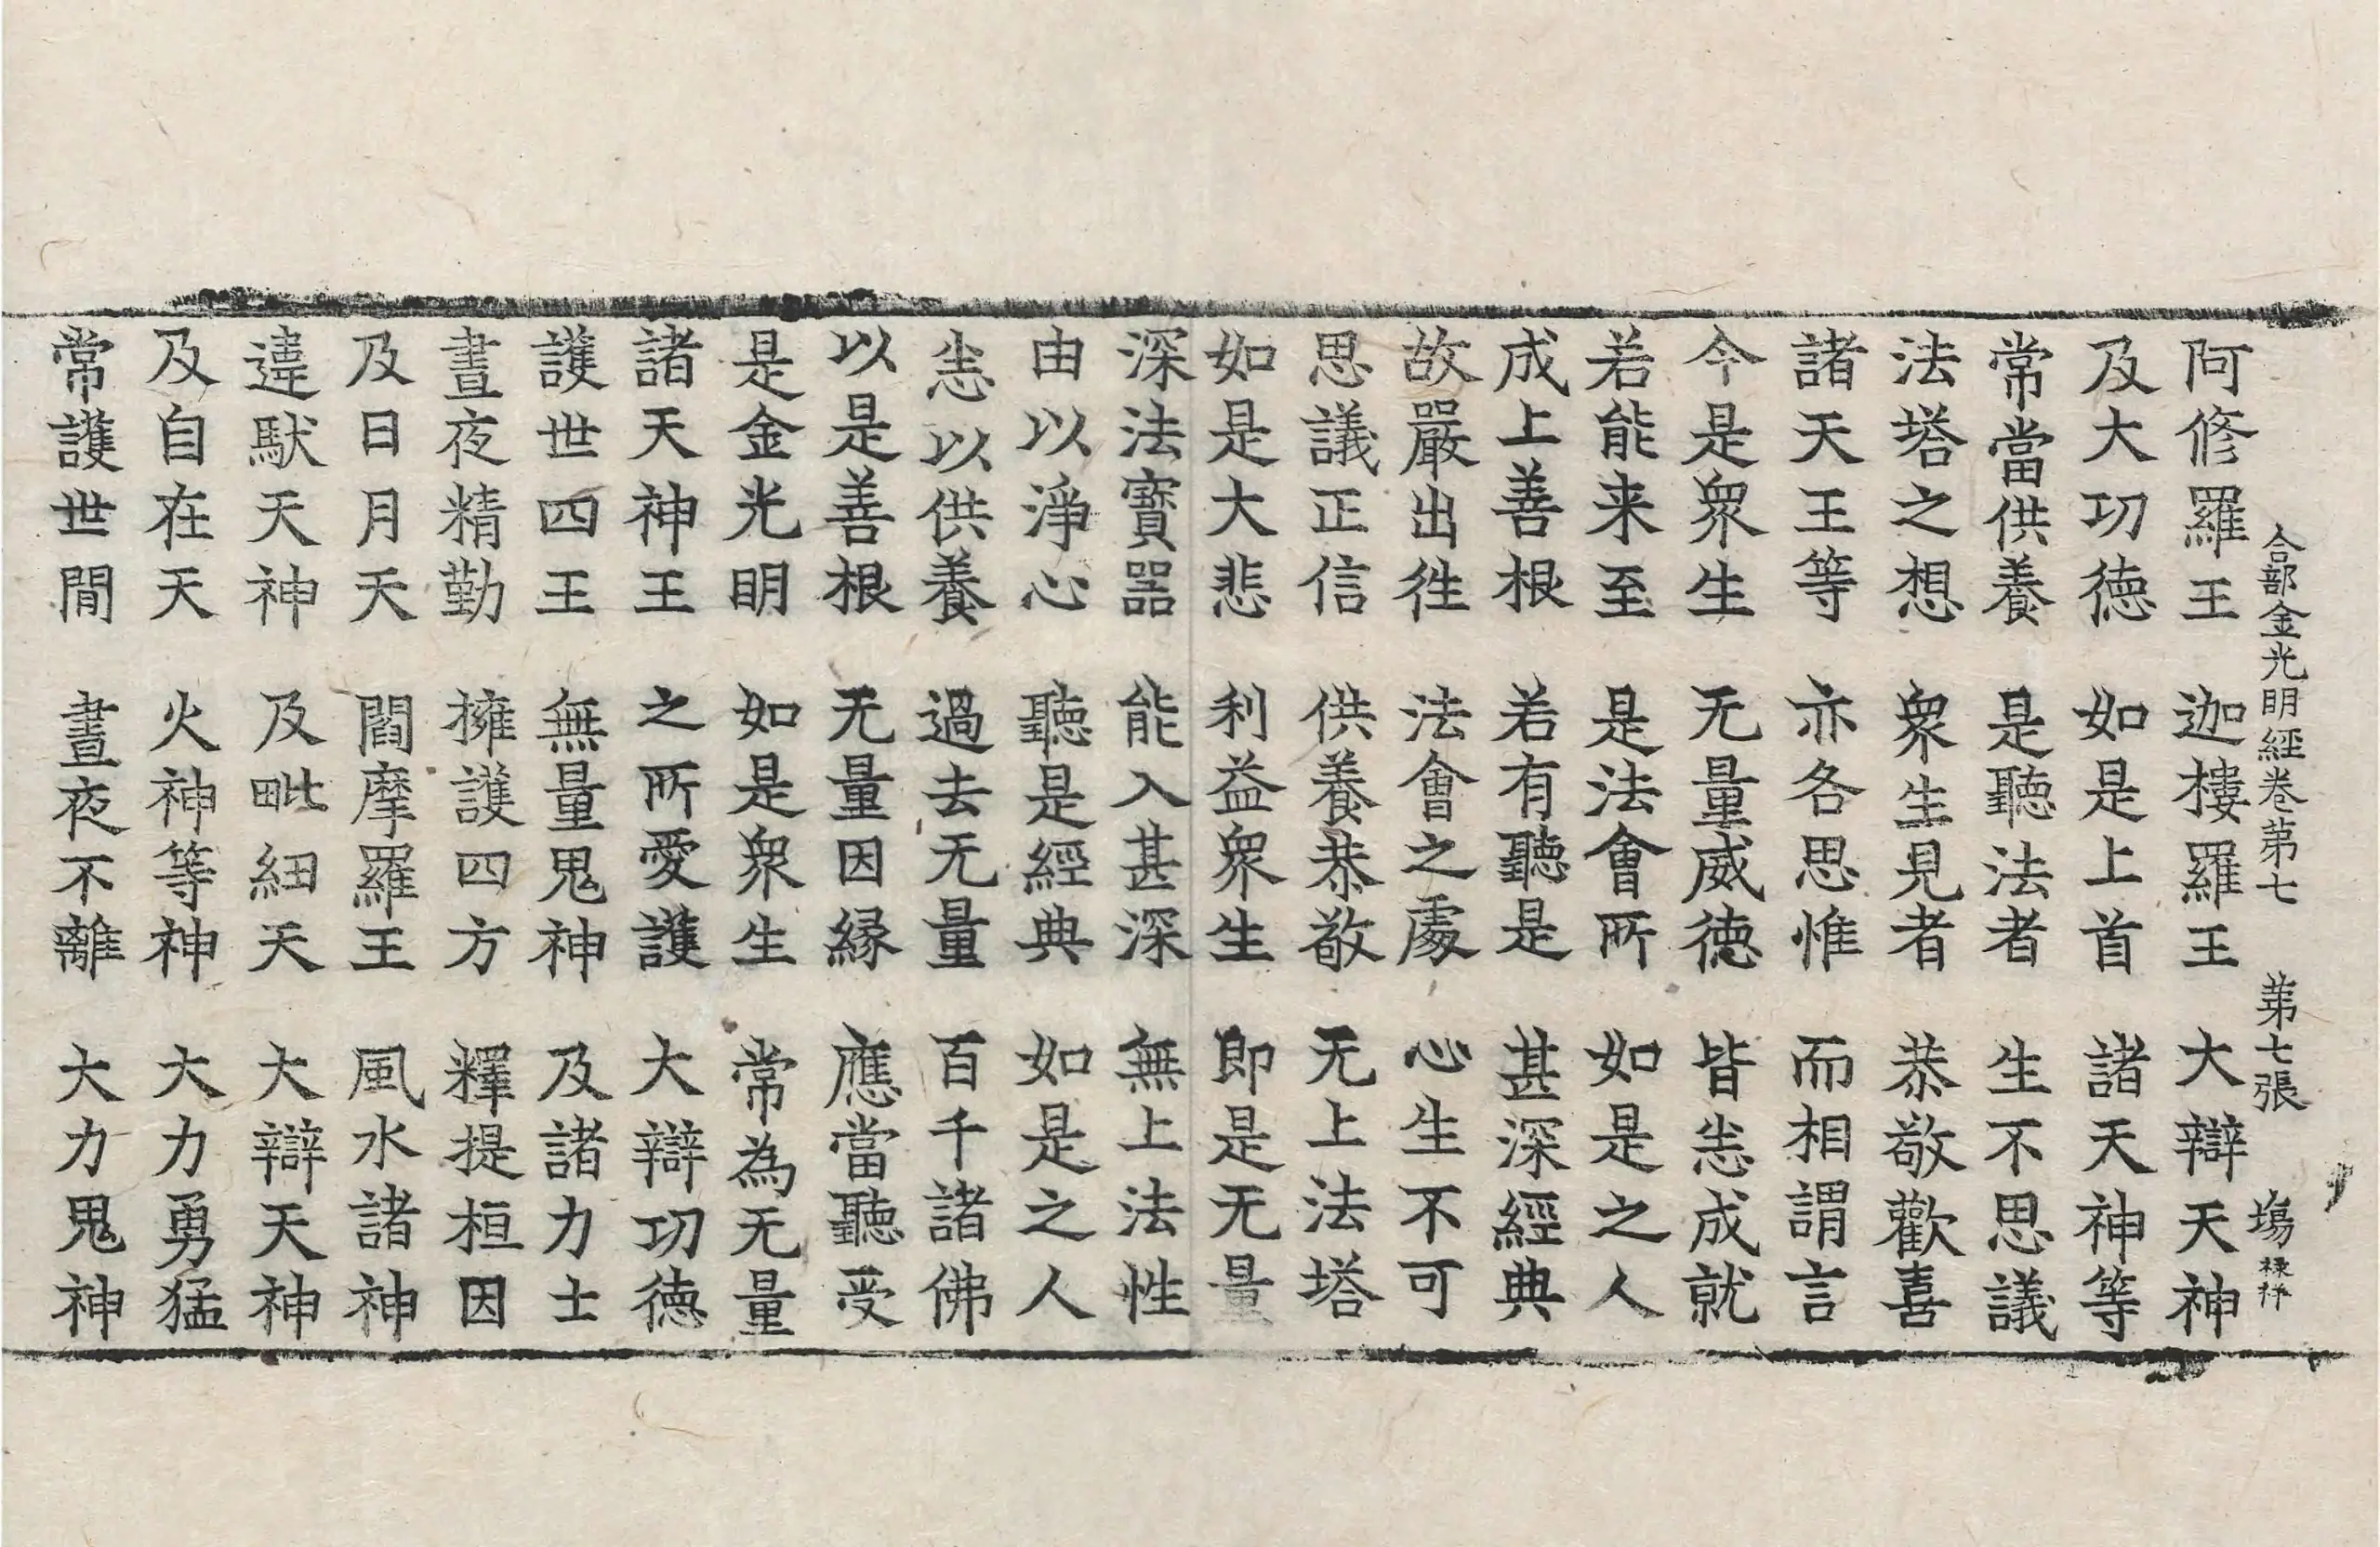 合部金光明經卷第七 第七張 塲 祿祥
阿修羅王 迦樓羅王 大辯天神
及大功德 如是上首 諸天神等
常當供養 是聽法者 生不思議
法塔之想 衆生見者 恭敬歡喜
諸天王等 亦各思惟 而相謂言
今是衆生 无量威德 皆悉成就
若能来至 是法會所 如是之人
成上善根 若有聽是 甚深經典
故嚴出徃 法會之處 心生不可
思議正信 供養恭敬 无上法塔
如是大悲 利益衆生 即是无量
深法寶器 能入甚深 無上法性
由以淨心 聽是經典 如是之人
悉以供養 過去无量 百千諸佛
以是善根 无量因縁 應當聽受
是金光明 如是衆生 常為无量
諸天神王 之所愛護 大辯功德
護世四王 無量鬼神 及諸力士
晝夜精勤 擁護四方 釋提桓因
及日月天 閻摩羅王 風水諸神
違馱天神 及毗紐天 大辯天神
及自在天 火神等神 大力勇猛
常護世間 晝夜不離 大力鬼神